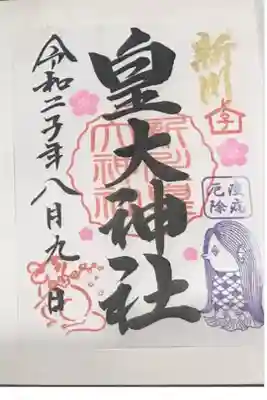 新川
疫病
厄除
皇大神社
令和二子年八月九日